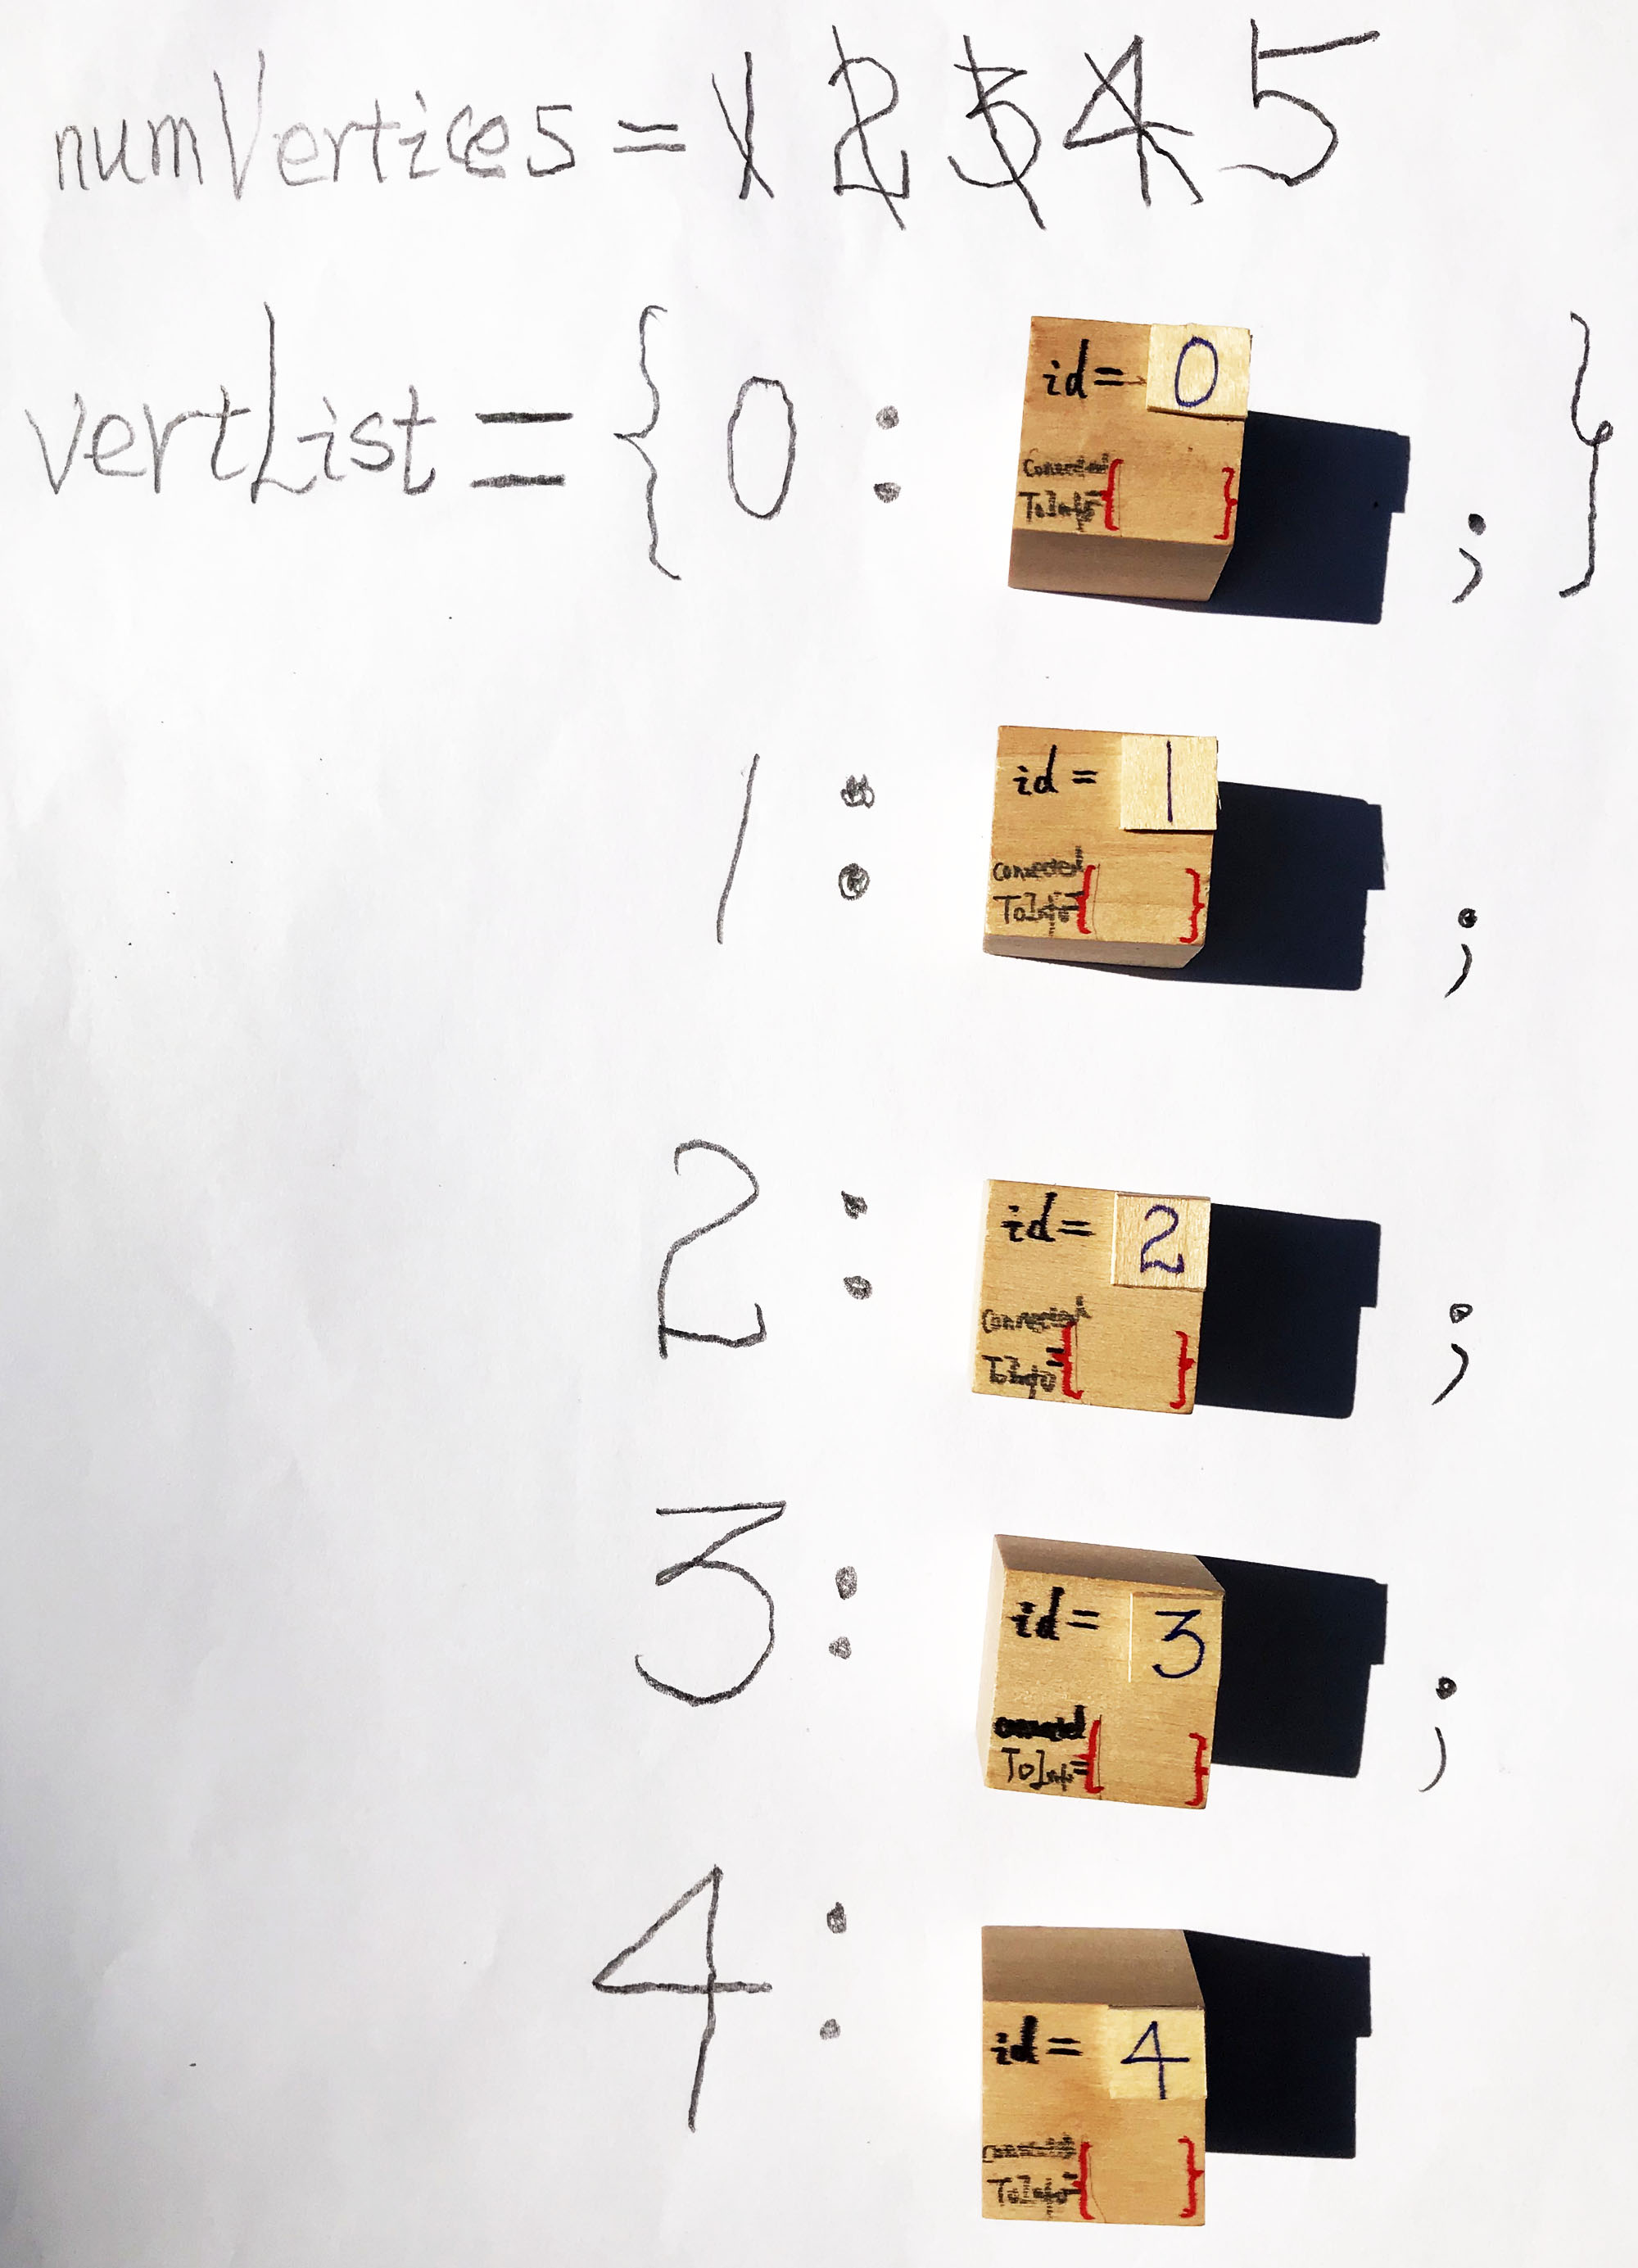 numVertices = 1 2 3 4 5
vertList = { 0 : id = 0 ; }
connected
ToInfo = { }
1 : id = 1 ;
connected
ToInfo = { }
2 : id = 2 ;
connected
ToInfo = { }
3 : id = 3 ;
ToInfo = { }
4 : id = 4
ToInfo = { }